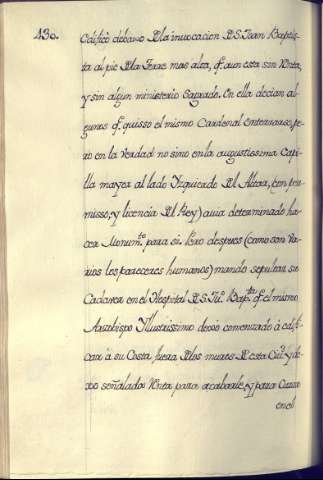 430.
Edificò debaxo de la invocacion de S. Juan Baptis-
ta al pie de la Torre mas alta, q.e aun esta sin Renta,
y sin algun ministerio Sagrado. En ella decian al-
gunos q.e quisso el mismo Cardenal enterrarse, pe-
ro en la verdad no sino en la augustissima Capi-
lla mayor al lado Izquierdo del Altar, (con per-
misso, y licencia del Rey) avia determinado ha-
cer Monum.to para si. Pero despues (como son va-
rios los pareceres humanos) mandò sepultar su
Cadaver en el Hospital de S. Ju.o Bap.ta q.e el mismo
Arzobispo Illustrissimo dexò comenzado à edifi-
car à su Costa fuera de los muros de esta Ciu.d y de-
xo señalada Renta para acabarle, y para Curar
en el